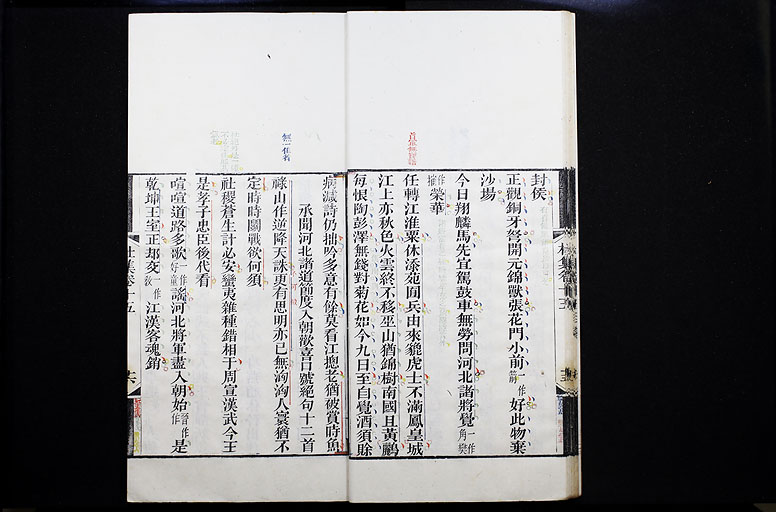 封侯
正觀銅牙弩開元錦獸張花門小前一作箭好此物棄
沙場
今日翔麟馬先宜駕鼓車無勞問河北諸將覺一作角
榮華
任轉江淮粟休添苑囿兵由來貔虎士不滿鳳皇城
江上亦秋色火雲終不移巫山猶錦樹南國且黃鸝
每恨陶彭澤無錢對菊花如今九日至自覺酒須賒
病減詩仍拙吟多意有餘莫看江摠老猶被賞時魚
承聞河北諸道節度入朝歡喜口號絕句十二首
祿山作逆降天誅更有思明亦已無洶洶人寰猶不
定時時鬭戰欲何須
社稷蒼生計必安蠻夷雜種錯相于周宣漢武今王
是孝子忠臣後代看
喧喧道路多歌一作好童謠河北將軍盡入朝始是
乾坤王室正却交一作教江漢客魂銷
杜集卷十五